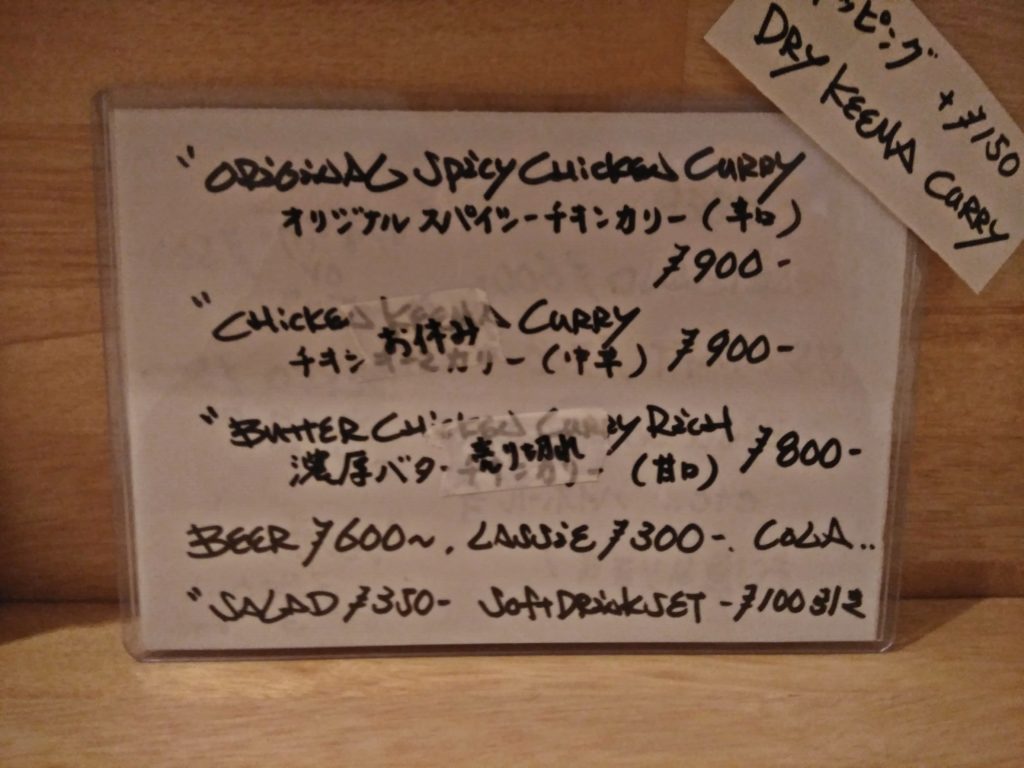 トッピング +¥150
DRY KEEMA CURRY
"ORIGINAL SPICY CHICKEN CURRY
オリジナルスパイシーチキンカリー(辛口)
¥900-
"CHICKEN KEEMA CURRY
お休み
チキンキーマカリー(中辛) ¥900-
"BUTTER CHICKEN CURRY RICH
売り切れ
濃厚バターチキンカリー(甘口) ¥800-
BEER ¥600~, LASSIE ¥300-. COLA..
"SALAD ¥350- SOFT DRINK SET -¥100引き